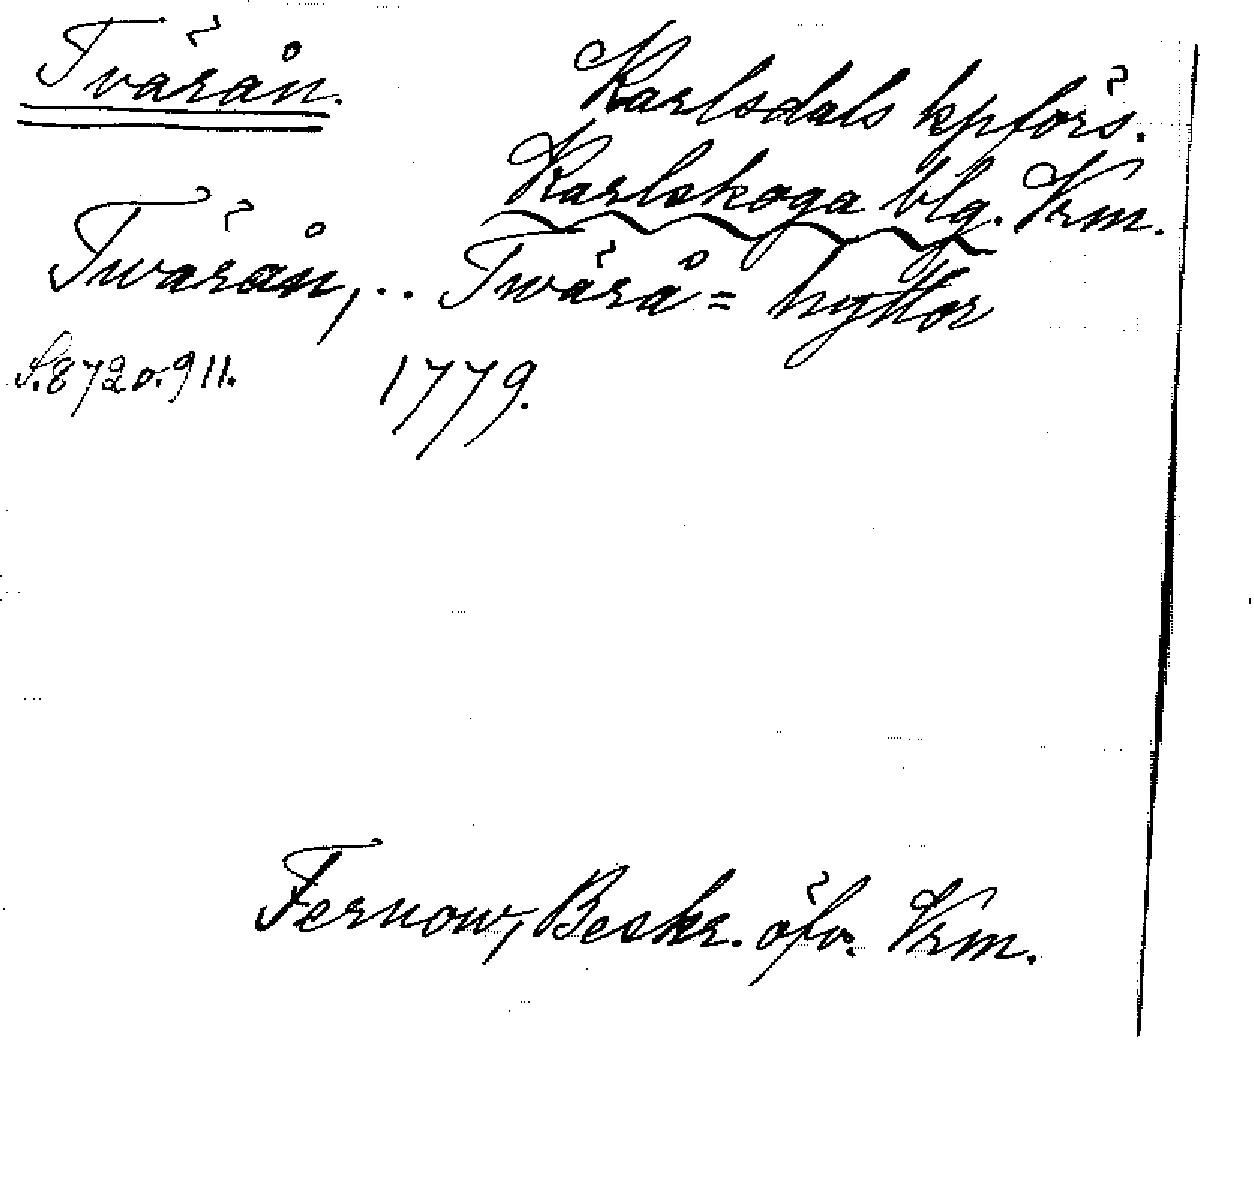 Tvärån.
Karlsdals kpförs.
Karlskoga blg. Vrm.
Twärån, .. Twärå= hyttor
S. 872 o. 911. 1779.
Fernow, Beskr. öfv. Vrm.